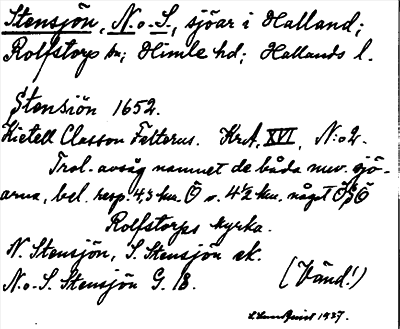 Stensjön, N. o. S., sjöar i Halland;
Rolfstorp sn; Himle hd; Hallands l.
Stensiön 1652.
Kietell Classon Felterus. KrA, XVI, N:o 2.
Trol. avsåg namnet de båda nuv. sjö-
arna, bel. resp. 4,3 km. Ö o. 4 1/2 km. något
Rolfstorps kyrka.
N. Stensjön, S. Stensjön ek.
N. o. S. Stensjön G. 18.
(Vänd!)
S. Lundqvist 1937.